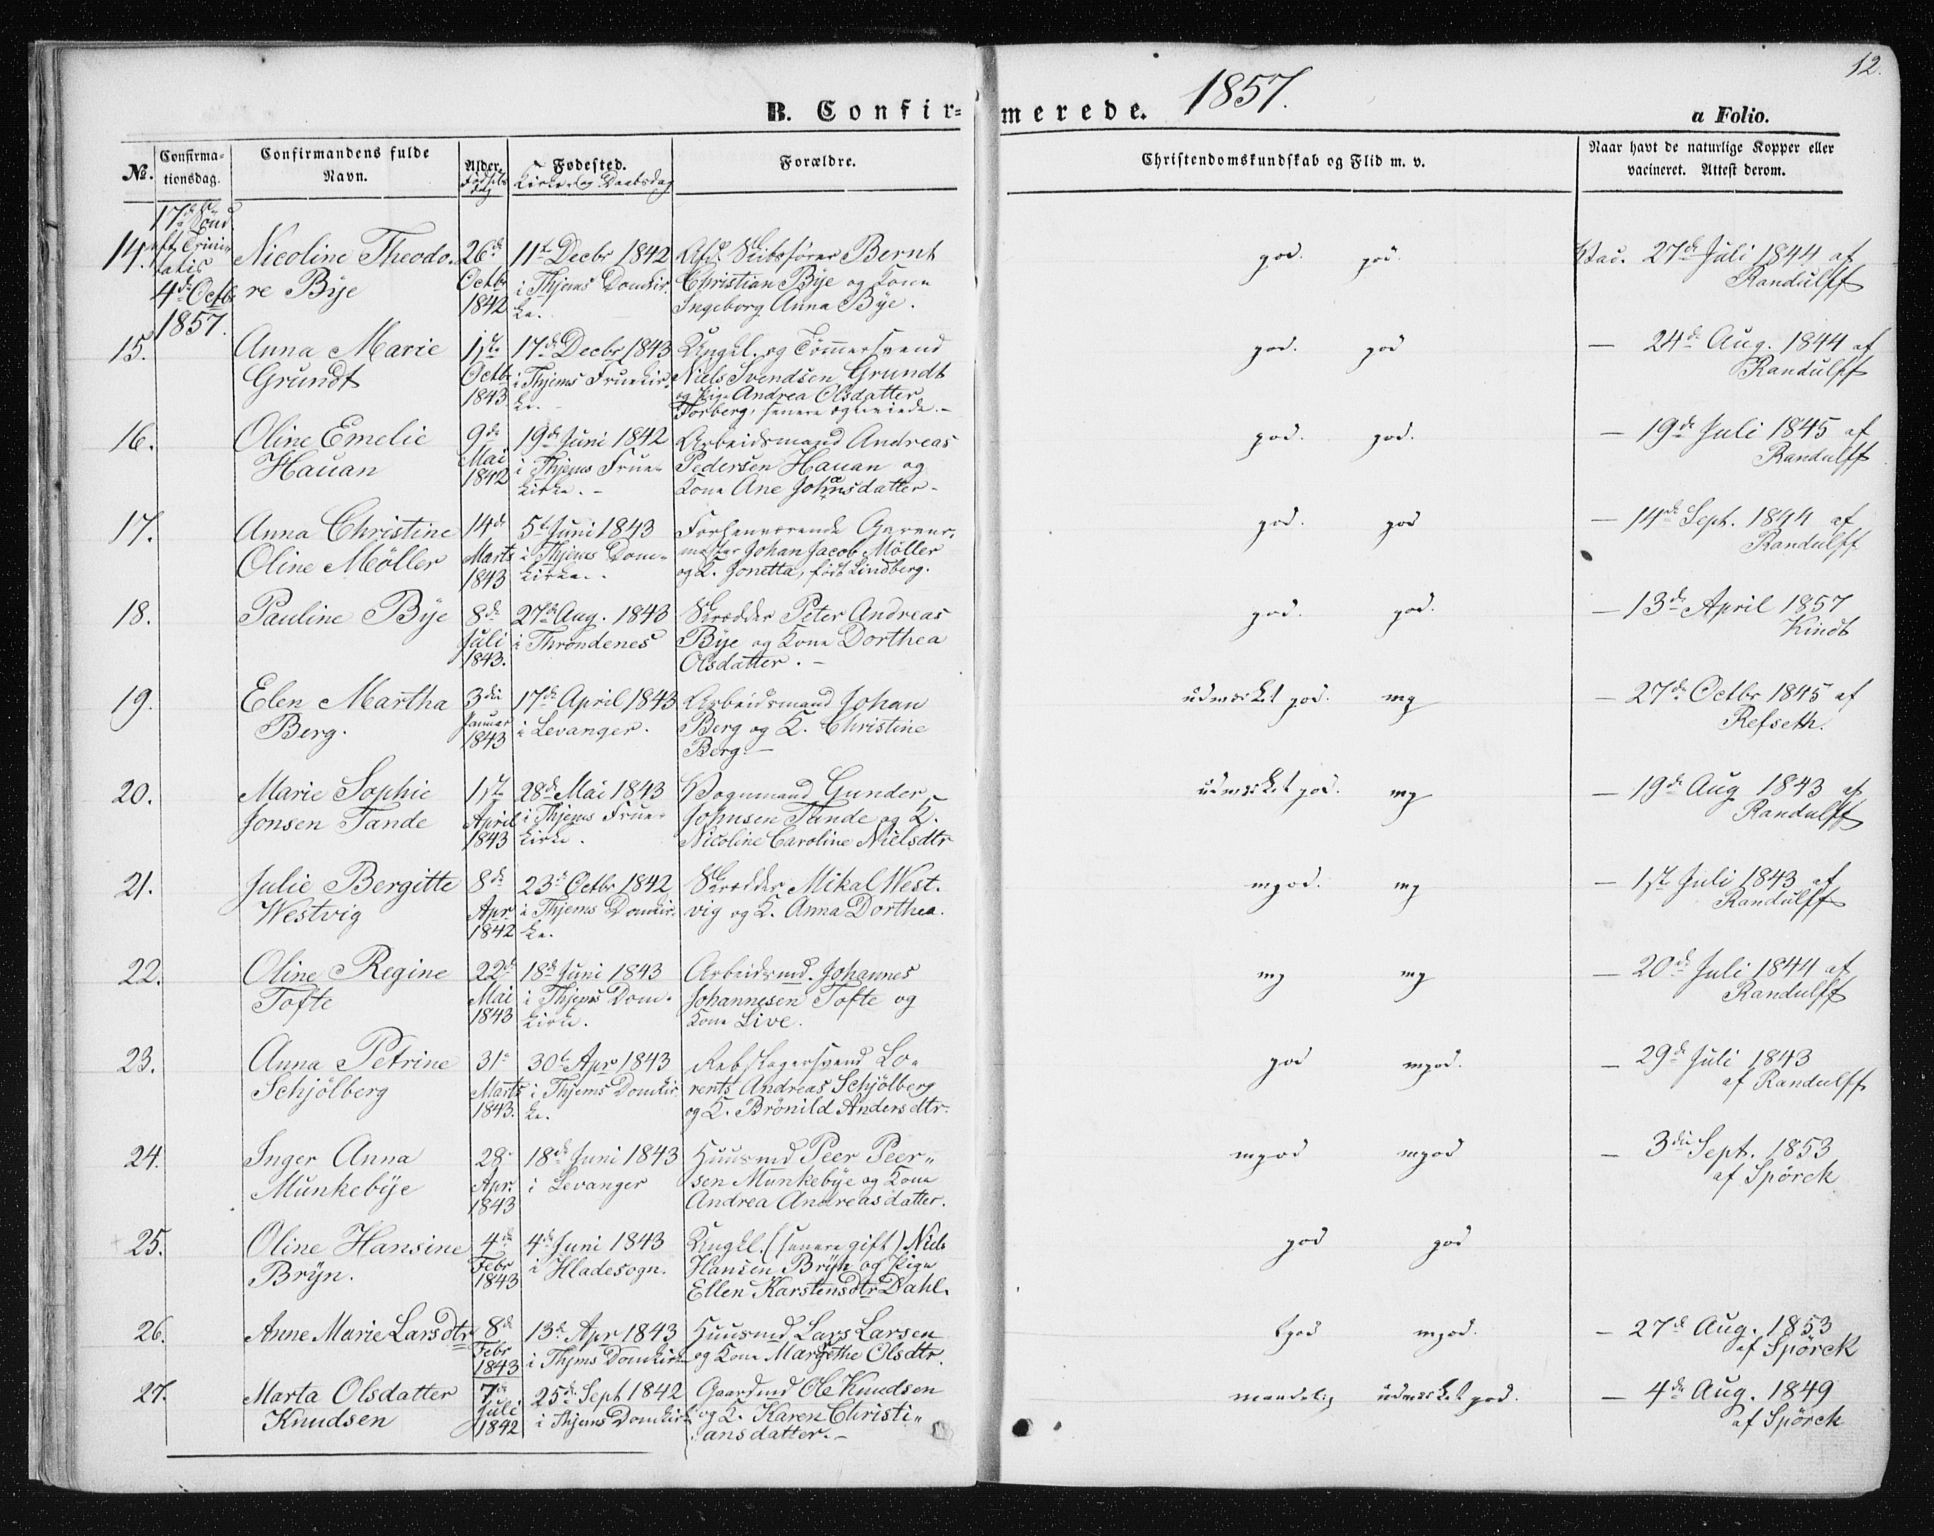 12.
B. Confirmerede. 1857.
a Folio.
No. Confirmationsdag. Confirmandens fulde Navn. Alder. Fødselsdag Fødested. Kirke og Daabsdag Forældre. Christendomskundskab og Flid m. v. Naar havt de naturlige Kopper eller vacineret. Attest derom.
17de Sönd. eft. Trinitatis 4de Octb. 1857.
14. Nicoline Theodo- 26de 11te Decbr 1842 Afd. Bernt god. god. Vac. 27de Juli 1844 af
re Bÿe Octbr i Thjems Domkir- Christian Bÿe og Kone Randulff
1842 ke. Ingeborg Anna Bÿe.
15. Anna Marie 1ste 17de Decbr 1843 Ungkl. og Tömmersvend god. god — 24de Aug. 1844 af
Grundt Octb. i Thjems Fruekir- Niels Svendsen Grundt Randulff
1843 ke. og Pige Andrea Olsdatter
Forberg, senere egteviede.-
16. Oline Emelie 9de 19de Juni 1842 Arbeidsmand Andreas god. god. — 19de Juli 1845 af
Hauan Mai i Thjems Frue- Pedersen Hauan og Randulff
1842 kirke. - Kone Ane Johnsdatter -
17. Anna Christine 14de 5te Juni 1843 Forhenværende Garver- god. god — 14de Sept. 1844 af
Oline Möller Marts i Thjems Dom- mester Johan Jacob Möller Randulff
1843 kirke. og K. Jonetta, født Lindberg.
18. Pauline Bÿe 8de 27de Aug. 1843 Skrædder Peter Andreas god. god. — 13de April 1857
Juli i Throndenes Bÿe og Kone Dorthea Kindt
1843. Olsdatter. -
19. Elen Martha 3die 17de April 1843 Arbeidsmand Johan udmærket god. mg — 27de Octbr 1845 af
Berg. Januar i Levanger. Berg og K. Christine Refseth.
1843 Berg. -
20. Marie Sophie 1ste 28de Mai 1843 Vognmand Gunder udmærket god. mg — 19de Aug 1843 af
Jonsen Tande April i Thjems Frue- Johnsen Tande og K. Randulff
1843 kirke. Nicoline Caroline Nielsdtr
21. Julie Bergitte 8de 23de Octbr 1842 Skrædder Mikal West- mgod. mg — 1ste Juli 1843 af
Westvig Apr. i Thjems Domkir- vig og K. Anna Dorthea. Randulff
1842 ke.
22. Oline Regine 22de 18de Juni 1843 Arbeidsmd. Johannes mg mg — 20de Juli 1844 af
Tofte Mai i Thjems Dom- Johannesen Tofte og Randulff
1843 kirke. Kone Live.
23. Anna Petrine 31te 30te Apr 1843 Rebslagersvend Lo- god mgod. — 29de Juli 1843
Schjölberg Marts i Thjems Domkir- rents Andreas Schjölberg af Randulff
1843. ke. og K. Brönild Andersdtr.
24. Inger Anna 28. 18de Juni 1843 Huusmd Peer Peer- mgod mgod — 3die Sept. 1853
Munkebÿe Apr. i Levanger sen Munkebÿe og Kone af Spörck
1843 Andrea Andreasdatter.
25. Oline Hansine 4de 4de Juni 1843 Ungkl. (senere gift) Niels god god
Brÿn. Febr i Hladesogn. Hansen Brÿn og Pige
1843 Ellen Karstensdtr Dahl.
26. Anne Marie Larsdtr 8de 13de Apr 1843 Huusmd Lars Larsen tgod mgod. — 27de Aug. 1853
Febr i Thjems Domkirke og Kone Margethe Olsdtr. af Spörck
1843
27. Marta Olsdatter 7de 25de Sept 1842 Gaardmd Ole Knudsen maadelig udmærket god. — 4de Aug. 1849
Knudsen Juli i Thjems Domkirke og K. Karen Christi- af Spörck
1842 ansdatter. -